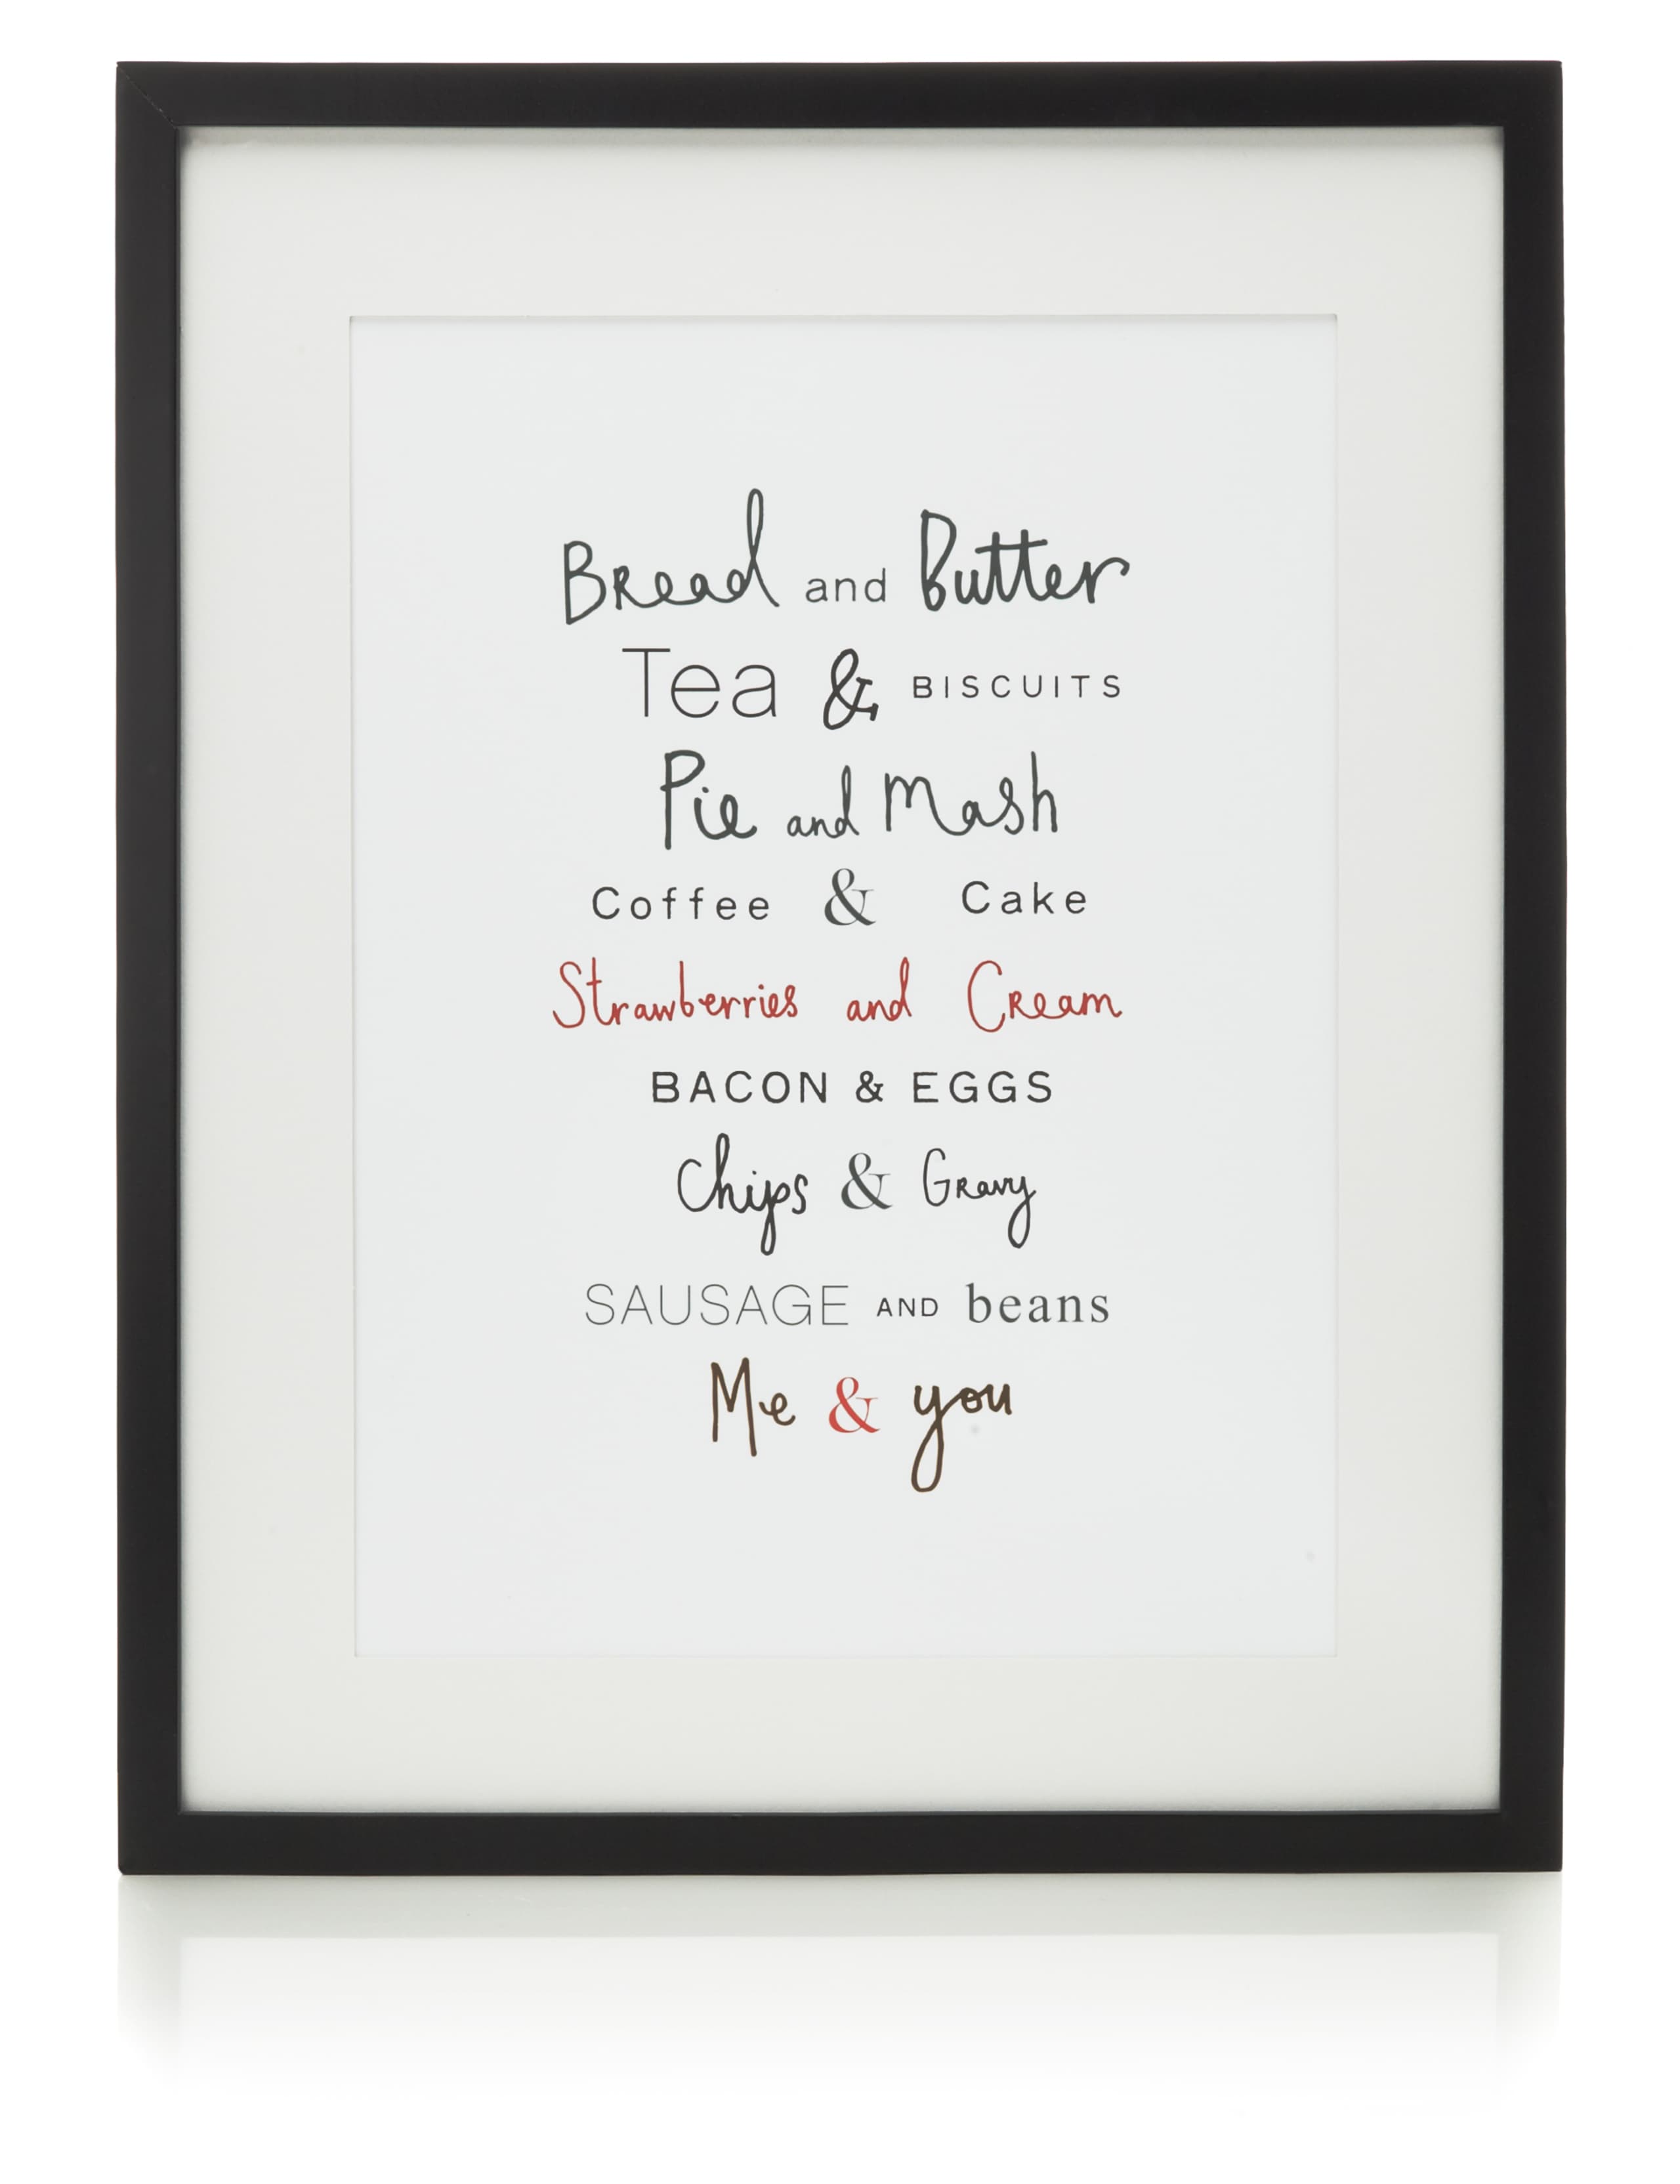 Bread and Butter
Tea & BISCUITS
Pie and Mash
Coffee & Cake
Strawberries and Cream
BACON & EGGS
Chips & Gravy
SAUSAGE AND beans
Me & you